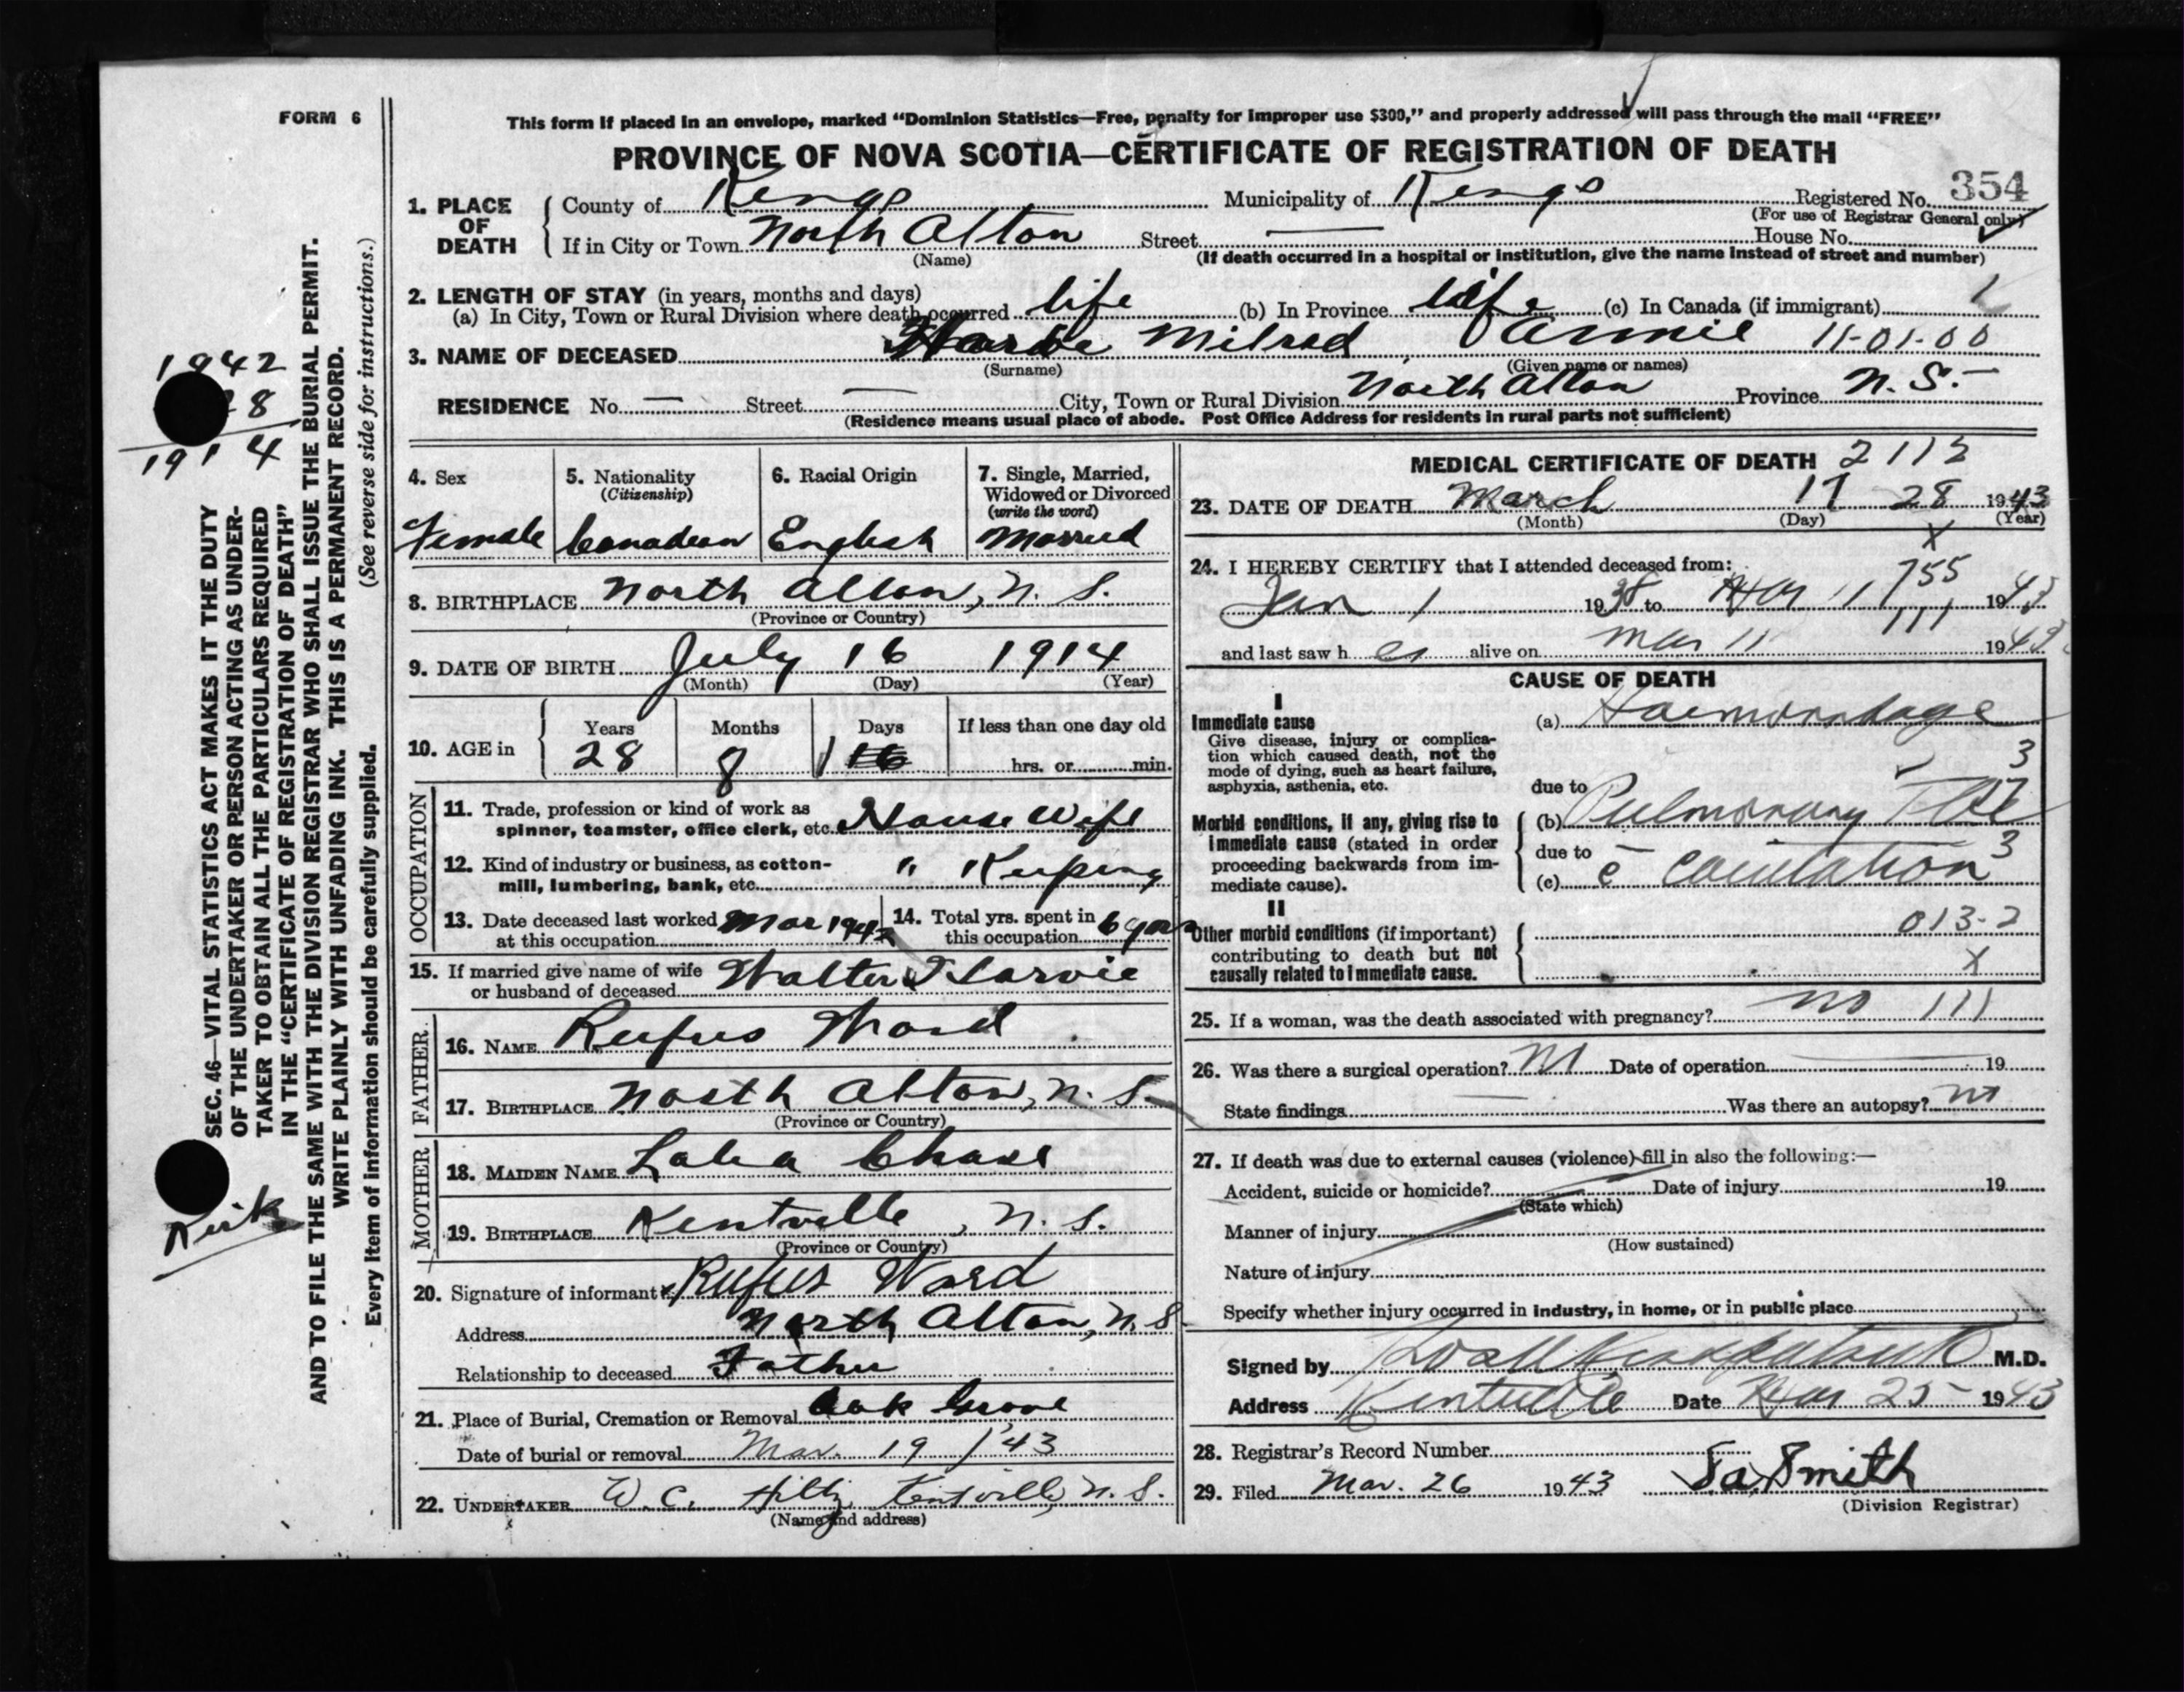 FORM 6
This form if placed in an envelope, marked "Dominion Statistics—Free, penalty for improper use $300," and properly addressed will pass through the mail "FREE"
PROVINCE OF NOVA SCOTIA—CERTIFICATE OF REGISTRATION OF DEATH
1. PLACE OF DEATH
County of Kings Municipality of Kings Registered No. 354
(For use of Registrar General only)
If in City or Town North Alton Street — House No.
(Name) (If death occurred in a hospital or institution, give the name instead of street and number)
2. LENGTH OF STAY (in years, months and days)
(a) In City, Town or Rural Division where death occurred life (b) In Province life (c) In Canada (if immigrant)
3. NAME OF DECEASED Milred Annie 11-01-00
(Surname) (Given name or names)
RESIDENCE No. — Street — City, Town or Rural Division North Alton Province N. S.
(Residence means usual place of abode. Post Office Address for residents in rural parts not sufficient)
4. Sex
Female
5. Nationality
(Citizenship)
Canadian
6. Racial Origin
English
7. Single, Married,
Widowed or Divorced
(write the word)
Married
8. BIRTHPLACE North Alton, N. S.
(Province or Country)
9. DATE OF BIRTH July 16 1914
(Month) (Day) (Year)
10. AGE in
Years Months Days If less than one day old
28 8 1 hrs. or min.
OCCUPATION
11. Trade, profession or kind of work as
spinner, teamster, office clerk, etc. House Wife
12. Kind of industry or business, as cotton-
mill, lumbering, bank, etc. " Keeping
13. Date deceased last worked Mar 1942
at this occupation
14. Total yrs. spent in
this occupation 6 years
15. If married give name of wife
or husband of deceased Walter Harvie
FATHER
16. NAME Rufus Ward
17. BIRTHPLACE North Alton, N. S.
(Province or Country)
MOTHER
18. MAIDEN NAME Chase
19. BIRTHPLACE Kentville, N. S.
(Province or Country)
20. Signature of informant x Rufus Ward
Address North Alton, N. S.
Relationship to deceased Father
21. Place of Burial, Cremation or Removal Oak Grove
Date of burial or removal Mar. 19 / '43
22. UNDERTAKER W. C. Hiltz Kentville, N. S.
(Name and address)
MEDICAL CERTIFICATE OF DEATH 2112
23. DATE OF DEATH March 17 28 1943
(Month) (Day) (Year)
X
24. I HEREBY CERTIFY that I attended deceased from: 755
Jan 1 1938 to Mar 11 1943
111
and last saw h er alive on Mar 11 1943
CAUSE OF DEATH
I
Immediate cause
Give disease, injury or complica-
tion which caused death, not the
mode of dying, such as heart failure,
asphyxia, asthenia, etc.
(a) Haemorrhage
3
due to
Morbid conditions, if any, giving rise to
immediate cause (stated in order
proceeding backwards from im-
mediate cause).
(b) Pulmonary
due to
(c) c̄ cavitation 3
II
Other morbid conditions (if important)
contributing to death but not
causally related to immediate cause.
013-2
X
25. If a woman, was the death associated with pregnancy? no 111
26. Was there a surgical operation? no Date of operation — 19
State findings — Was there an autopsy? no
27. If death was due to external causes (violence) fill in also the following:—
Accident, suicide or homicide? Date of injury 19
(State which)
Manner of injury
(How sustained)
Nature of injury
Specify whether injury occurred in industry, in home, or in public place
Signed by M.D.
Address Kentville Date Mar 25 1943
28. Registrar's Record Number
29. Filed Mar. 26 1943 S. a. Smith
(Division Registrar)
1942
28
1914
Kirk
SEC. 46—VITAL STATISTICS ACT MAKES IT THE DUTY
OF THE UNDERTAKER OR PERSON ACTING AS UNDER-
TAKER TO OBTAIN ALL THE PARTICULARS REQUIRED
IN THE "CERTIFICATE OF REGISTRATION OF DEATH"
AND TO FILE THE SAME WITH THE DIVISION REGISTRAR WHO SHALL ISSUE THE BURIAL PERMIT.
WRITE PLAINLY WITH UNFADING INK. THIS IS A PERMANENT RECORD.
Every item of information should be carefully supplied. (See reverse side for instructions.)